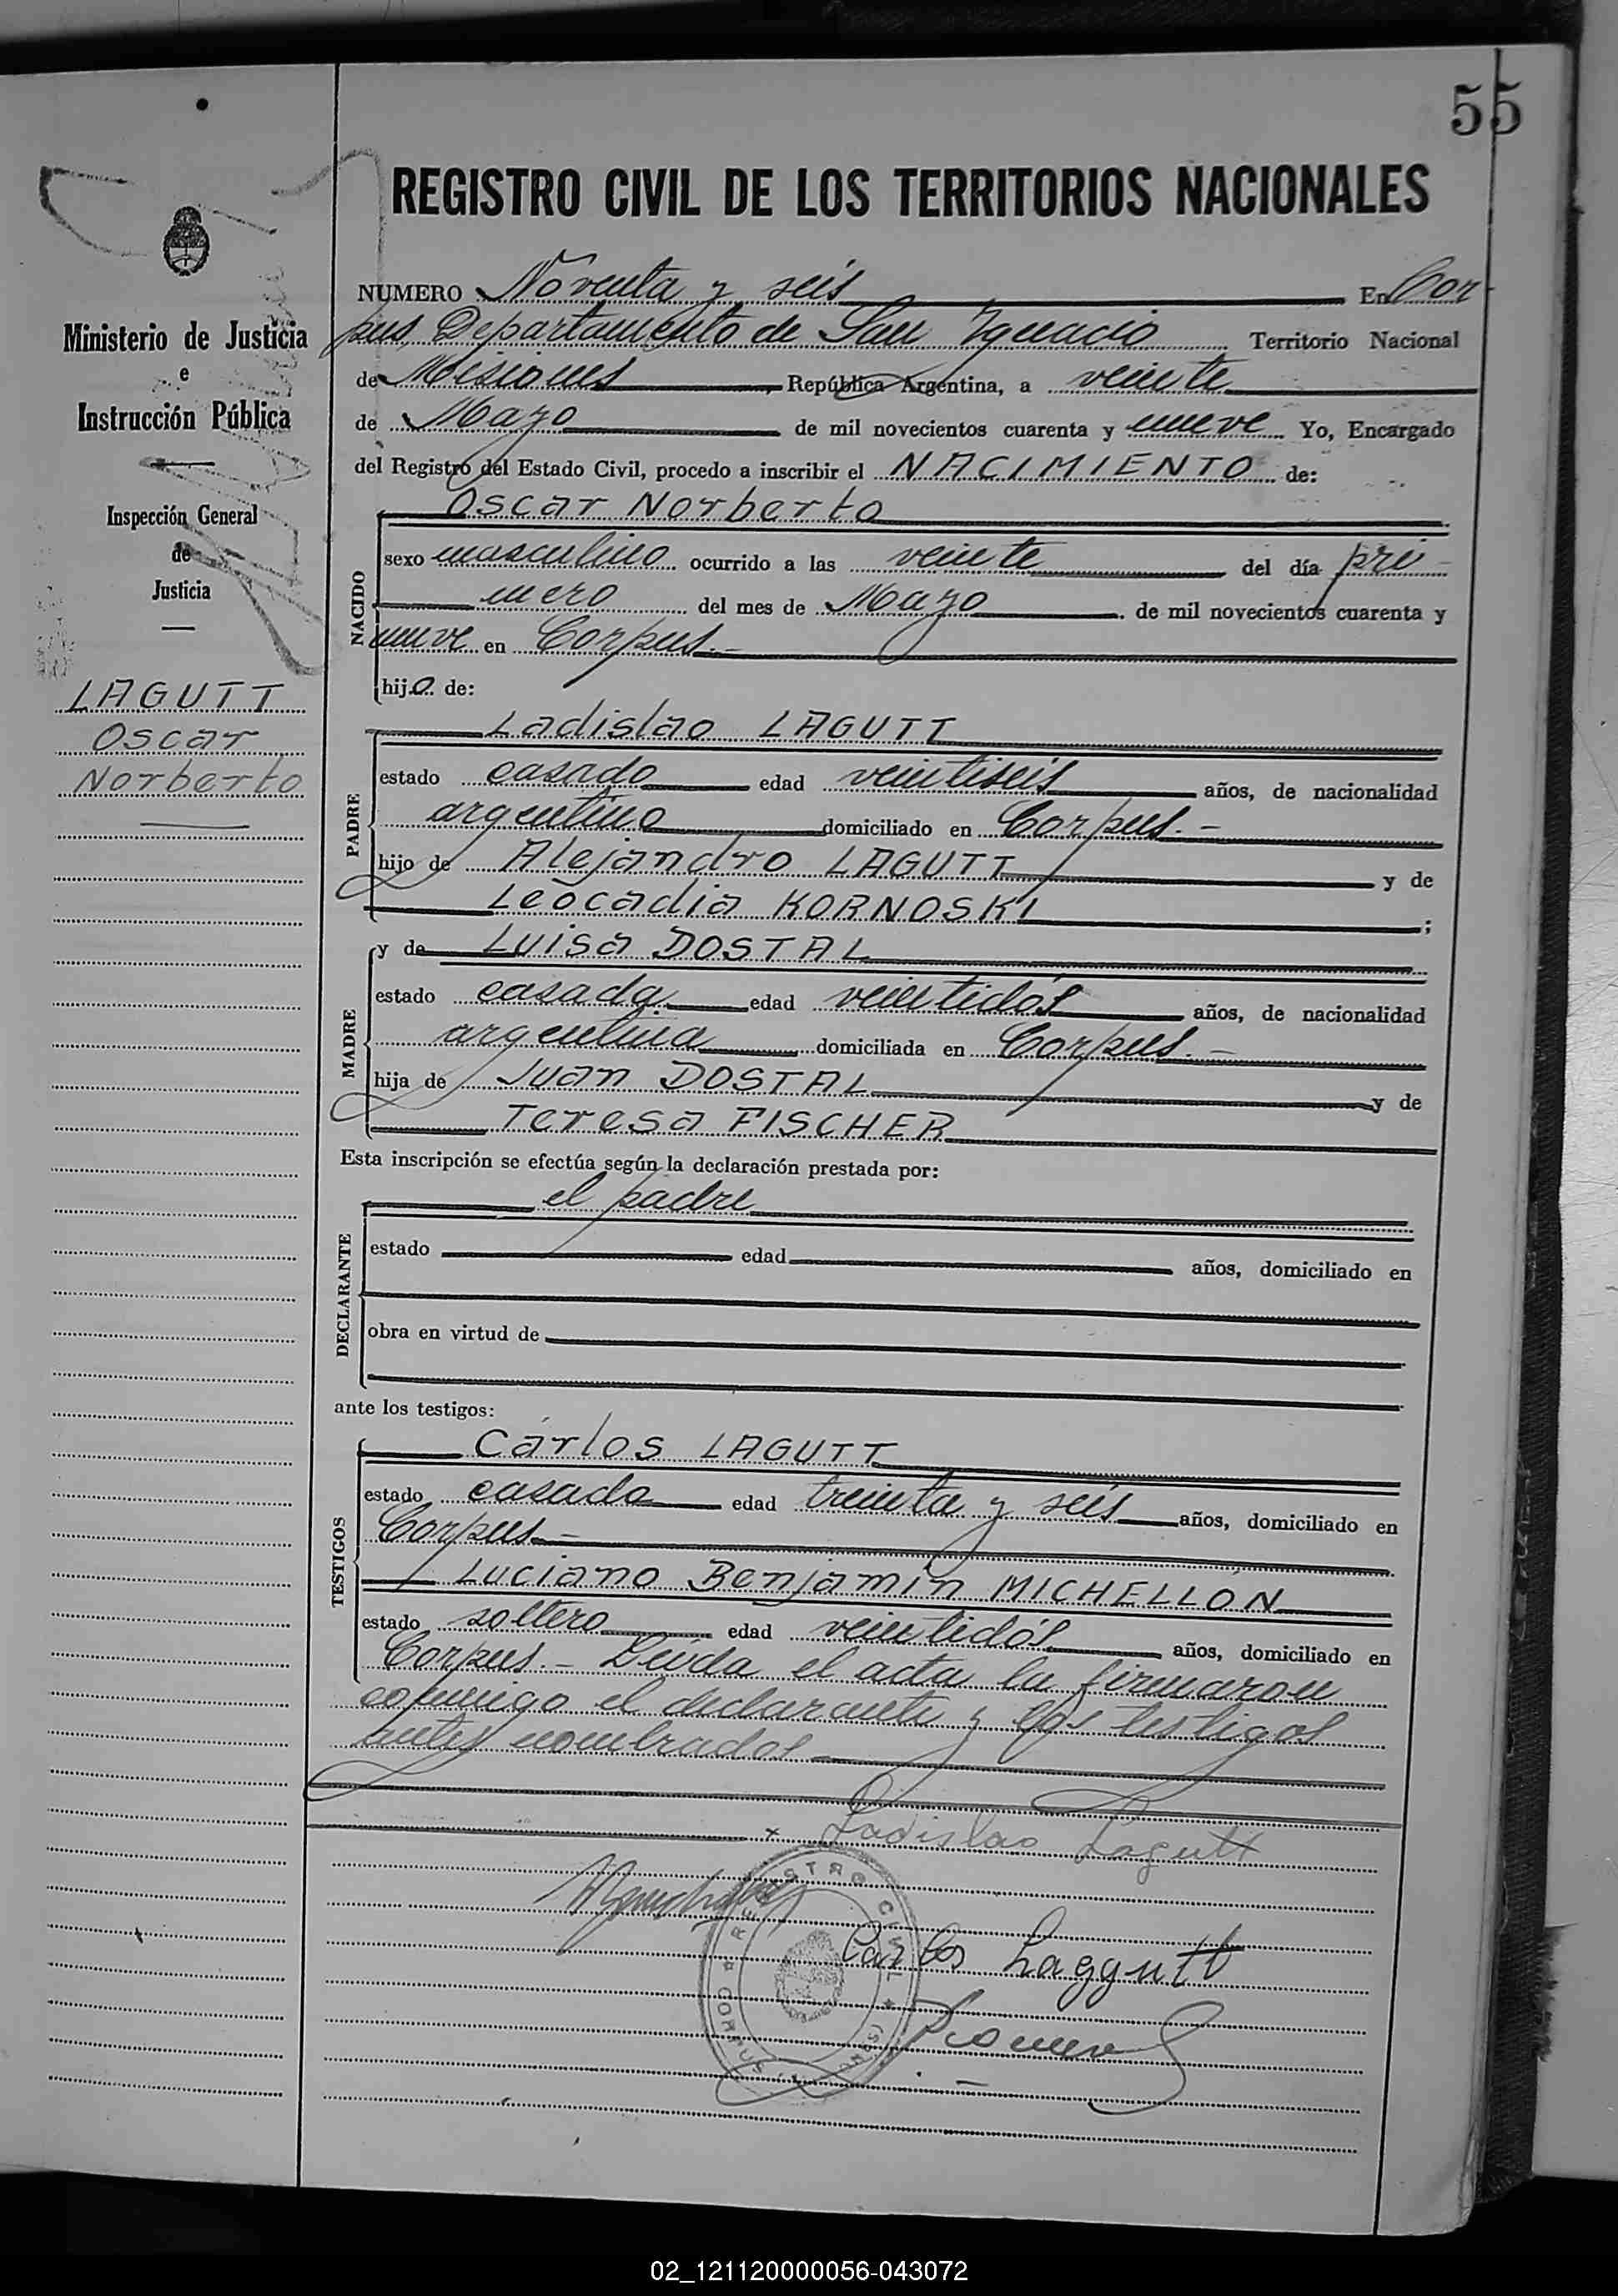 55
REGISTRO CIVIL DE LOS TERRITORIOS NACIONALES
Ministerio de Justicia
e
Instrucción Pública
Inspección General
de
Justicia
LAGUTT
Oscar
Norberto
NUMERO Noventa y seis En Cor-
pus, Departamento de San Ignacio Territorio Nacional
de Misiones, República Argentina, a veinte
de Mayo de mil novecientos cuarenta y nueve Yo, Encargado
del Registro del Estado Civil, procedo a inscribir el NACIMIENTO de:
Oscar Norberto
NACIDO
sexo masculino ocurrido a las veinte del día pri-
mero del mes de Mayo de mil novecientos cuarenta y
nueve en Corpus.-
hijo de:
Ladislao LAGUTT
PADRE
estado casado edad veintiseis años, de nacionalidad
argentino domiciliado en Corpus.-
hijo de Alejandro LAGUTT y de
Leocadia KORNOSKI;
MADRE
y de Luisa DOSTAL
estado casada edad veintidós años, de nacionalidad
argentina domiciliada en Corpus.-
hija de Juan DOSTAL y de
Teresa FISCHER
Esta inscripción se efectúa según la declaración prestada por:
el padre
DECLARANTE
estado edad años, domiciliado en
obra en virtud de
ante los testigos:
Carlos LAGUTT
TESTIGOS
estado casado edad treinta y seis años, domiciliado en
Corpus.-
Luciano Benjamin MICHELLON
estado soltero edad veintidós años, domiciliado en
Corpus.- Leída el acta la firmaron
conmigo el declarante y los testigos
antes nombrados
Ladislao Lagutt
REGISTRO CIVIL
CORPUS
Carlos Laggutt
02_121120000056-043072